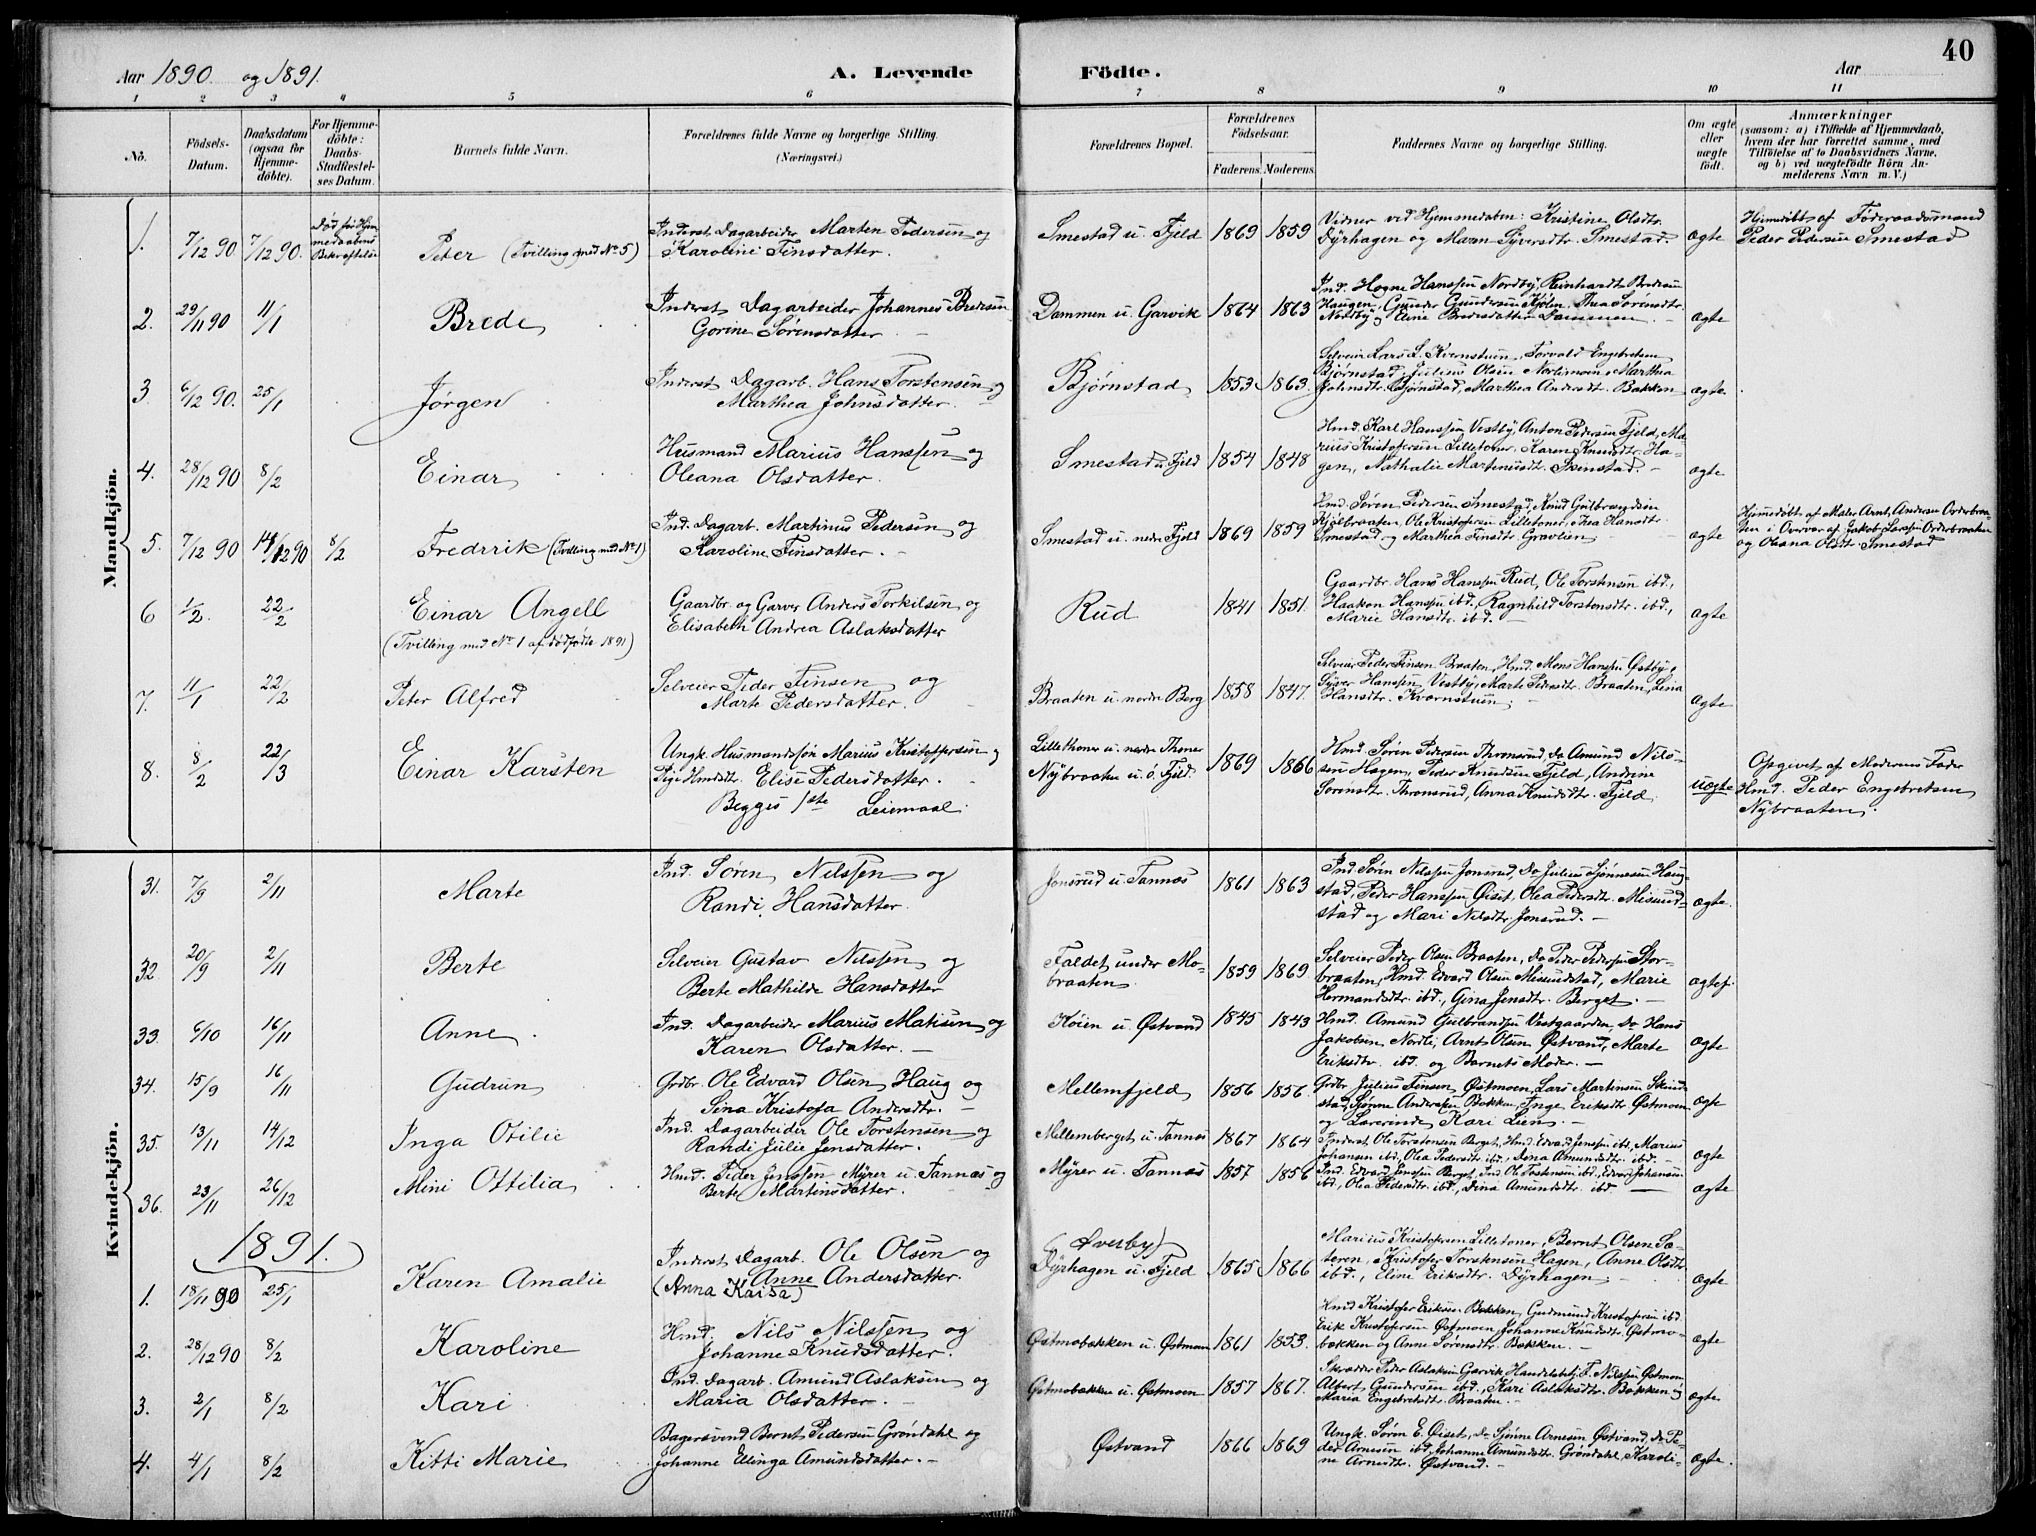 Aar 1890 og 1891.
A. Levende Födte.
Aar
40
1 2 3 4 5 6 7 8 9 10 11
No.
Födsels-
Datum.
Daabsdatum
(ogsaa for
Hjemme-
döbte).
For Hjemme-
döbte:
Daabs-
Stadfæstel-
ses Datum.
Barnets fulde Navn.
Forældrenes fulde Navne og borgerlige Stilling.
(Næringsvei.)
Forældrenes Bopæl.
Forældrenes
Födselsaar.
Faderens. Moderens.
Faddernes Navne og borgerlige Stilling.
Om ægte
eller
uægte
födt.
Anmærkninger
(saasom: a) i Tilfælde af Hjemmedaab,
hvem der har forrettet samme, med
Tilföielse af to Daabsvidners Navne,
og b) ved uægtefödte Börn An-
melderens Navn m. V.)
Mandkjön.
1. 7/12 90 7/12 90. Död før Hjem
medaabens
Bekræftelse
Peter (Tvilling med No 5)
Inderst Dagarbeider Marten Pedersen og
Karoline Finsdatter.
Smestad u. Fjeld 1869 1859
Vidner ved Hjemmedaben: Kristine Olsdtr.
Dyrhagen og Maren Syversdtr. Smestad.
ægte
Hjemedöbt af Föderaadsmand
Peder Pedersen Smestad
2. 29/11 90 11/1 Brede
Inderst Dagarbeider Johannes Bredesen
Gorine Sørensdatter
Dammen u. Garvik 1864 1863
Ind. Hogne Hanssen Nordby, Reinhardt Bredesen
Haugen, Gunder Gundersen Kjölen, Thea Sorensdtr.
Nordby og Eline Bredesdatter Dammen.
ægte
3 6/12 90. 25/1 Jörgen
Inderst Dagarb. Hans Torstensen og
Marthea Johnsdatter.
Bjørnstad 1853 1863.
Selveier Lars L. Kvernstuen, Torvald Engebretsen
Bjørnstad, Julius Olsen Nordimoen, Marthea
Johnsdtr. Bjørnstad, Marthea Andersdt. Bakken
ægte
4. 28/12 90 8/2 Einar
Husmand Marius Hanssen og
Oleana Olsdatter.
Smestad u. Fjeld 1854 1848
Hmd. Karl Hanssen Vestby, Anton Pedersen Fjeld, Ma-
rius Kristofersen Lilletoner, Karen Knudsdtr. Ha-
gen, Nathalie Martinusdt. Skinstad
ægte
5. 7/12 90 14/12 90 8/2 Fredrik (Tvilling med No 1)
Ind. Dagarb. Martinus Pedersen og
Karoline Finsdatter.
Smestad u. nedre Fjeld 1869 1859
Hmd. Søren Pedersen Smestad, Knud Gulbrandsen
Kjølbraaten, Ole Kristofersen Lilletoner, Thea Hansdtr.
Smestad og Marthea Finsdt. Gravlien
ægte
Hjemedöbt af Maler Arnt Andersen Orderbraa
ten i Overvær af Jakob Larsen Orderbraaten
og Oleana Olsdtr. Smestad
6 1/2. 22/2 Einar Angell
(Tvilling med No 1 af dödfødte 1891)
Gaardbr. og Garver Anders Torkilsen og
Elisabeth Andrea Aslaksdatter
Rud 1841 1851.
Gaardbr. Hans Hanssen Rud, Ole Torstensen ibd.,
Haakon Hanssen ibd., Ragnhild Torstensdtr. ibd.,
Marie Hansdtr. ibd.
ægte
7. 11/1 22/2 Peter Alfred
Selveier Peder Finsen og
Marte Pedersdatter.
Braaten u. nordre Berg 1858 1847.
Selveier Peder Finsen Braaten, Hmd. Mons Hanssen Østby,
Syver Hanssen Vestby, Marte Pedersdtr. Braaten, Lina
Hansdtr. Kvernstuen.
ægte
8. 8/2 22/3 Einar Karsten
Ungk. Husmandssøn Marius Kristoffersen og
Pige Hmdsdtr. Elise Pedersdatter.
Begges 1ste Leiemaal.
Lillethoner u. nedre Thoner
Nybraaten u. ö. Fjeld. 1869 1866
Hmd. Søren Pedersen Thronsrud, do Amund Nils-
sen Hagen, Peder Knudsen Fjeld, Andrine
Sorensdtr. Thronsrud, Anna Knudsdtr. Fjeld
uægte
Opgivet af Moderens Fader
Hmd. Peder Engebretsen
Nybraaten.
Kvindekjön.
31. 7/9 2/11 Marte
Ind. Sören Nilssen og
Randi Hansdatter.
Jonsrud u. Tannæs 1861 1863
Ind. Søren Nilssen Jonsrud, Do Julius Sjønnesen Haug-
stad, Peder Hanssen Øiset, Olea Pedersdt. Misund-
stad og Mari Nilsdtr. Jonsrud.
ægte.
32. 20/9 2/11 Berte
Selveier Gustav Nilssen og
Berte Mathilde Hansdatter
Faldet under Mo-
braaten 1859 1869
Selveier Peder Olsen Braaten, do Peder Pedersen Stor-
braaten, Hmd. Edvard Olsen Misundstad, Marie
Hermandsdtr. ibd., Gina Jensdtr. Berget.
ægtef.
33. 6/10 16/11 Anne
Ind. Dagarbeider Marius Matisen og
Karen Olsdatter.
Koien u. Østvand 1845 1843
Hmd. Amund Gulbrandsen Vestgaarden, Do Hans
Jakobsen Nordli, Arnt Olsen Østvand, Marte
Eriksdtr. ibd. og Barnets Moder.
ægte
34. 15/9 16/11 Gudrun
Grdbr. Ole Edvard Olsen Haug og
Sina Kristofa Andersdtr.
Mellemfjeld 1856 1856.
Grdbr. Julius Finsen Østmoen, Lars Martinsen Skind-
stad, Sjønne Andersen Bakken, Inge Eriksdtr. Østmoen
og Lærerinde Kari Lien.
ægte
35. 13/11 14/12 Inga Otilie
Ind. Dagarbeider Ole Torstensen og
Randi Julie Jensdatter.
Mellemberget u. Tannæs 1867 1864
Inderst Ole Torstensen Berget, Hmd. Edvard Jenssen ibd., Marius
Johansen ibd., Olea Pedersdt. ibd., Dina Amundsdt. ibd.
ægte
36. 23/11 26/12 Mini Ottilia
Hmd. Peder Jenssen Myrer u. Tannæs og
Berte Martinsdatter.
Myrer u. Tannæs 1857 1856
Ind. Edvard Jenssen Berget, Ind. Ole Torstensen ibd., Edvard Johansen
ibd., Olea Pedersdtr. ibd., Dina Amundsdt. ibd.
ægte
1891.
1. 18/11 90 25/1 Karen Amalie
Inderst Dagarb. Ole Olsen og
Anne Andersdatter.
(Anna Kaisa)
(Øvesby)
Dyrhagen u. Fjeld 1865 1866
Marius Kristofersen Lilletoner, Bernt Olsen Sæ-
teren, Kristofer Torstensen Hagen, Anne Olsdtr.
ibd., Eline Eriksdtr. Dyrhagen.
ægte
2. 28/12 90 8/2 Karoline
Hmd. Nils Nilssen og
Johanne Knudsdatter.
Østmobækken u. Østmoen 1861 1853.
Hmd. Kristofer Eriksen Bækken, Gudmund Kristofersen ibd.
Erik Kristofersen Østmoen, Johanne Knudsdtr. Østmo-
bækken og Anne Sørensdtr. Bækken.
ægte
3. 2/1 8/2 Kari
Ind. Dagarb. Amund Aslaksen og
Maria Olsdatter.
Østmobækken u. Østmoen 1857 1867.
Skrædder Peder Aslaksen Garvik, Handelsbetj. F. Nilssen Østmoen,
Albert Gundersen ibd., Kari Aslaksdtr. Bakken og
Maria Engebretsdtr. Braaten.
ægte
4. 4/1 8/2 Kitti Marie
Bagersvend Bernt Pedersen Gröndahl og
Johanne Ellinga Amundsdatter.
Østvand 1866 1869
Ungk. Sören E. Øiset, do Sjønne Arnesen Østvand, do Pe-
der Arnesen ibd., Johanne Amundsdtr. Gröndahl, Karoli-
ne Arnesdtr. Østvand.
ægte.